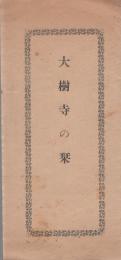 大樹寺の栞